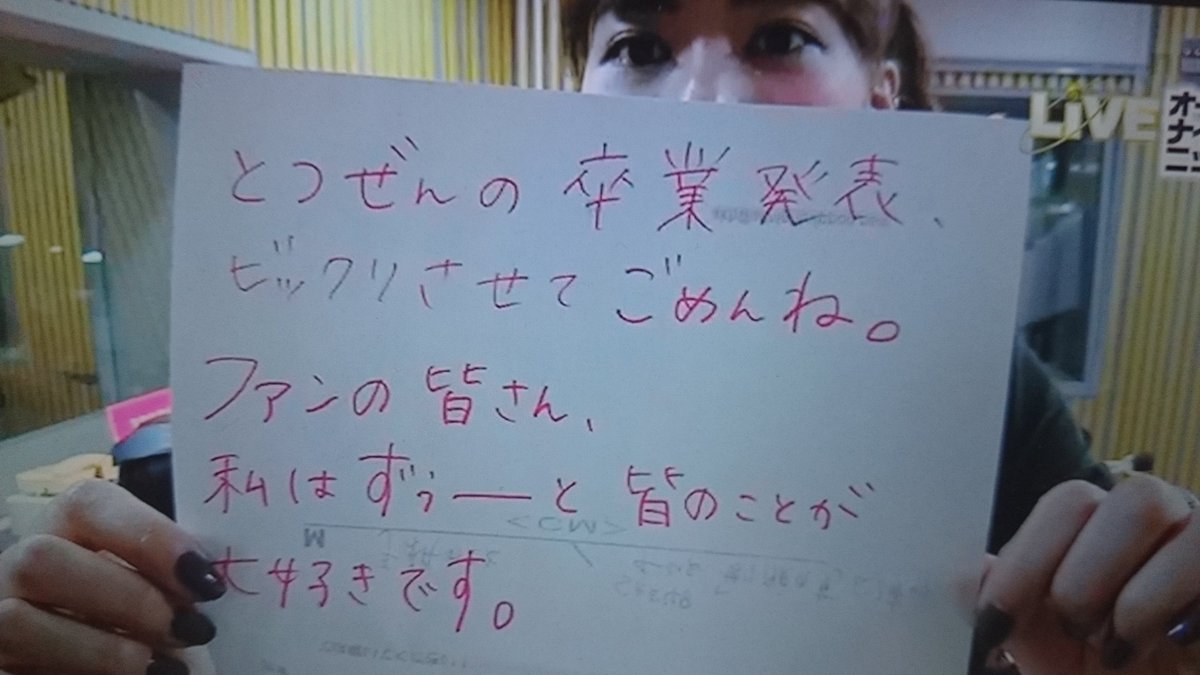 とつぜんの卒業発表、
ビックリさせてごめんね。
ファンの皆さん、
私はずぅーーと皆のことが
大好きです。
LiVE
オー
ナイ
ニッ